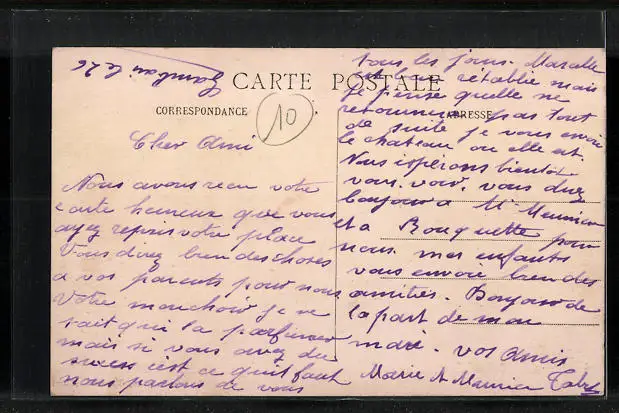 le 26
CARTE POSTALE
CORRESPONDANCE
ADRESSE
10
Cher Ami
Nous avons recu votre
carte heureux que vous
ayez repris votre place
Vous direz bien des choses
a vos parents pour nous
Votre mouchoir je ne
sait qui la parfumer
mais si vous avez du
succes c'est ce qu'il faut
nous parlons de vous
tous les jours. Marcelle
est rétablie mais
je pense quelle ne
retournera pas tout
de suite je vous envoi
le chateau ou elle est.
Nous espérons bientôt
vous voir. vous direz
bonjour a Mr Meunier
et a Bouquette pour
nous. mes enfants
vous envoie bien des
amitiés. Bonjour de
la part de mon
mari. vos Amis
Marie et Maurice